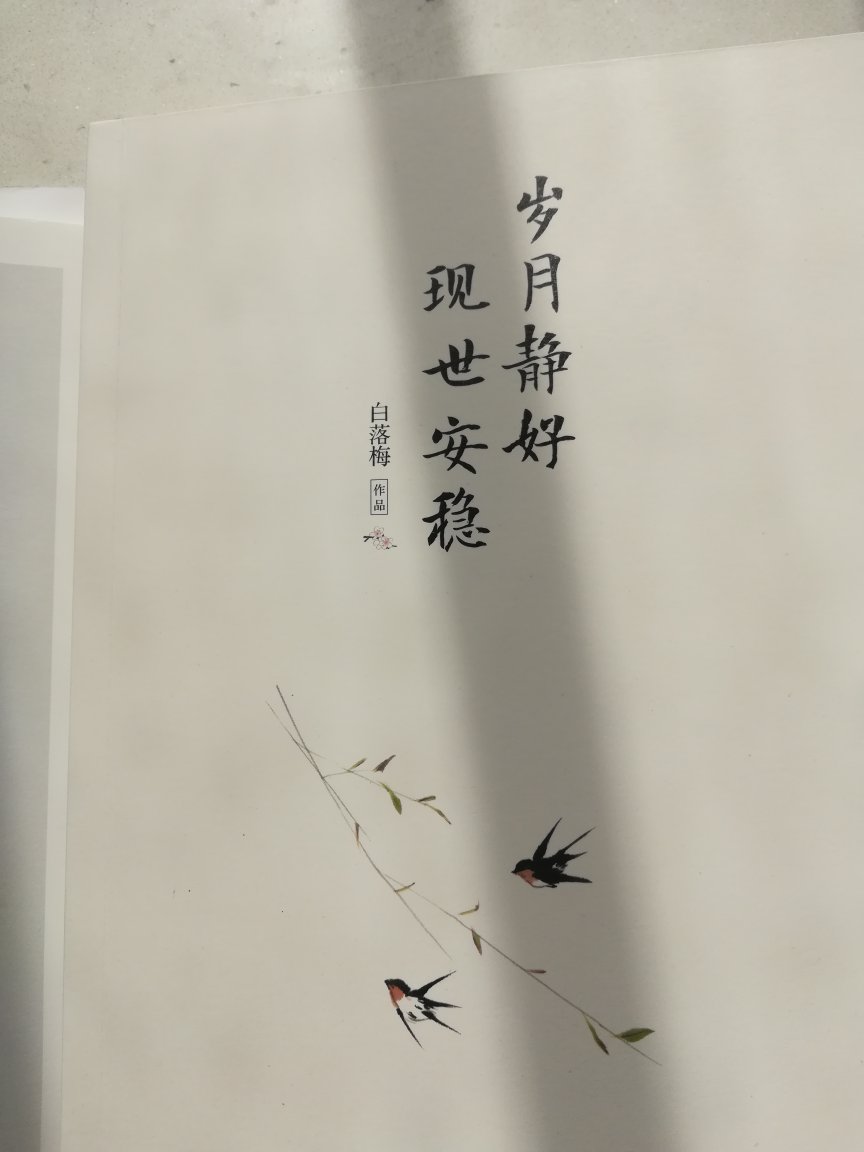 岁月静好
现世安稳
白落梅
作品